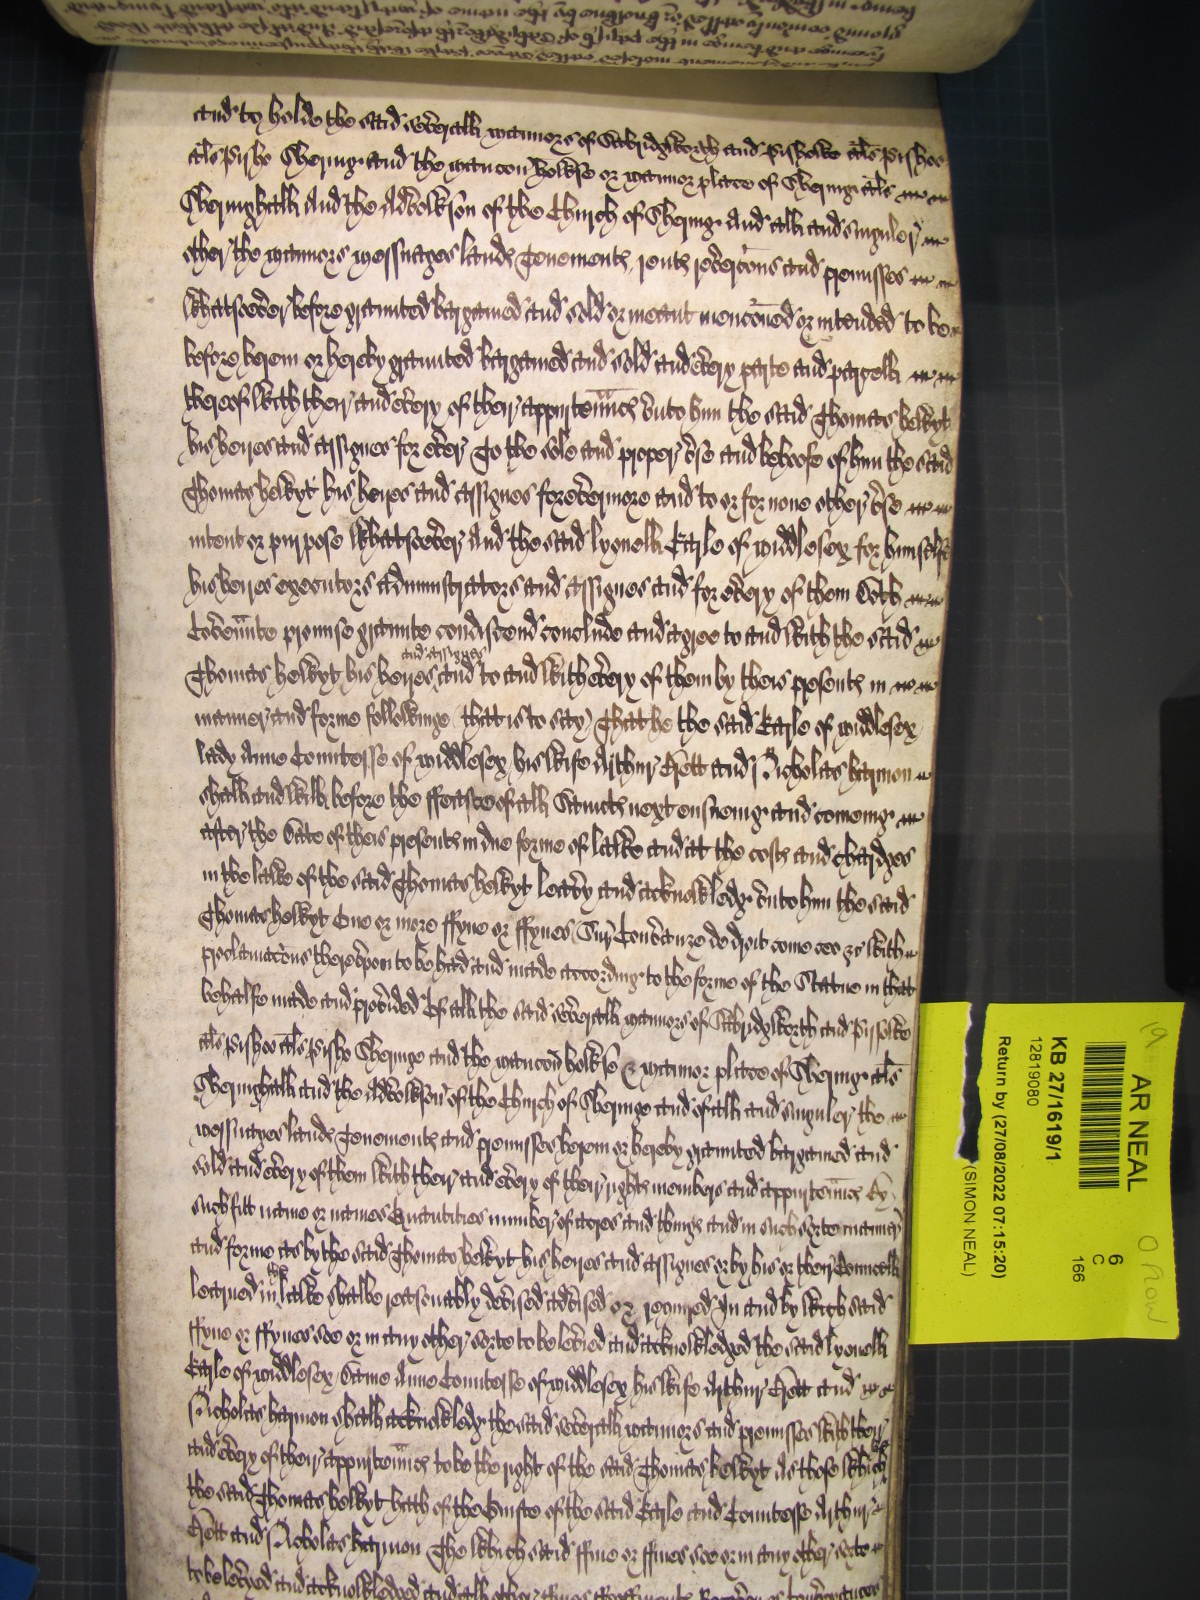 And to holde the said severall mannors of Sabridgeworth and Pishoke als Pishoo
als Pisho Shering and the mancon howse or mannor place of Shering als
Sheringhall And the Advowson of the Church of Shering And all and singuler
other the mannors messuages lands Tenements rents revercons and premisses
whatsoever before graunted bargained and sold or meant menconed or intended to be
before herein or hereby graunted bargained and sold and every parte and parcell
thereof with their and every of their appurtennces unto him the said Thomas hewyt
his heires and assignes for ever To the sole and proper use and behoofe of him the said
Thomas hewyt his heires and assignes forevermore and to or for none other use
intent or purpose whatsoever And the said Lyonell Earle of Middlesex for himselfe
his heires executors administrators and assignes and for every of them Doth
Covennte promise graunte condiscend conclude and agree to and with the said
and assignes
Thomas hewyt his heires and to and with every of them by theis presents in
manner and forme followinge (that is to say) That he the said Earle of Middlesex
lady Anne Countesse of Middlesex his wife Arthur Brett and Nicholas harmon
shall and will before the ffeaste of all Saints next ensueing and comeing
after the date of theis presents in due forme of lawe and at the costs and chardges
in the lawe of the said Thomas hewyt leavy and acknowledg unto him the said
Thomas hewyt One or more ffyne or ffynes Sur Conusanze de droit come ceo &c with
proclamacons thereupon to be had and made according to the forme of the Statue in that
behalfe made and provided Of all the said severall mannors of Sabridgworth and Pisshoke
als Pishoo als Pisho Sheringe and the mancon howse & mannor place of Shering als
Sheringhall and the Advowson of the Church of Sheringe and of all and singuler the
messuages lands Tenements and premisses herein or hereby graunted bargained and
sold and every of them with their and every of their rights members and appurtennces By
such fitt name or names Quantities number of acres and things and in such sorte manner
and forme as by the said Thomas hewyt his heires and assignes or by his or their Councell
the
learned in lawe shalbe reasonably devised advised or required In and by which said
ffyne or ffynes soe or in any other sorte to be levied and acknowledged the said Lyonell
Earle of Middlesex Dame Anne Countesse of Middlesex his wife Arthur Brett and
Nicholas harmon shall acknowledg the said severall mannors and premisses with their
and every of their appurtennces to be the right of the said Thomas hewyt As those which
the said Thomas hewyt hath of the Guiste of the said Earle and Countesse Arthur
Brett and Nicholas harmon The which said ffine or ffines soe or in any other sorte
to be levyed and acknowledged and all other fines feoffments Recoveries conveyances
AR NEAL
KB 27/1619/1
12819080
Return by (27/08/2022 07:15:20)
(SIMON NEAL)
6
C
166